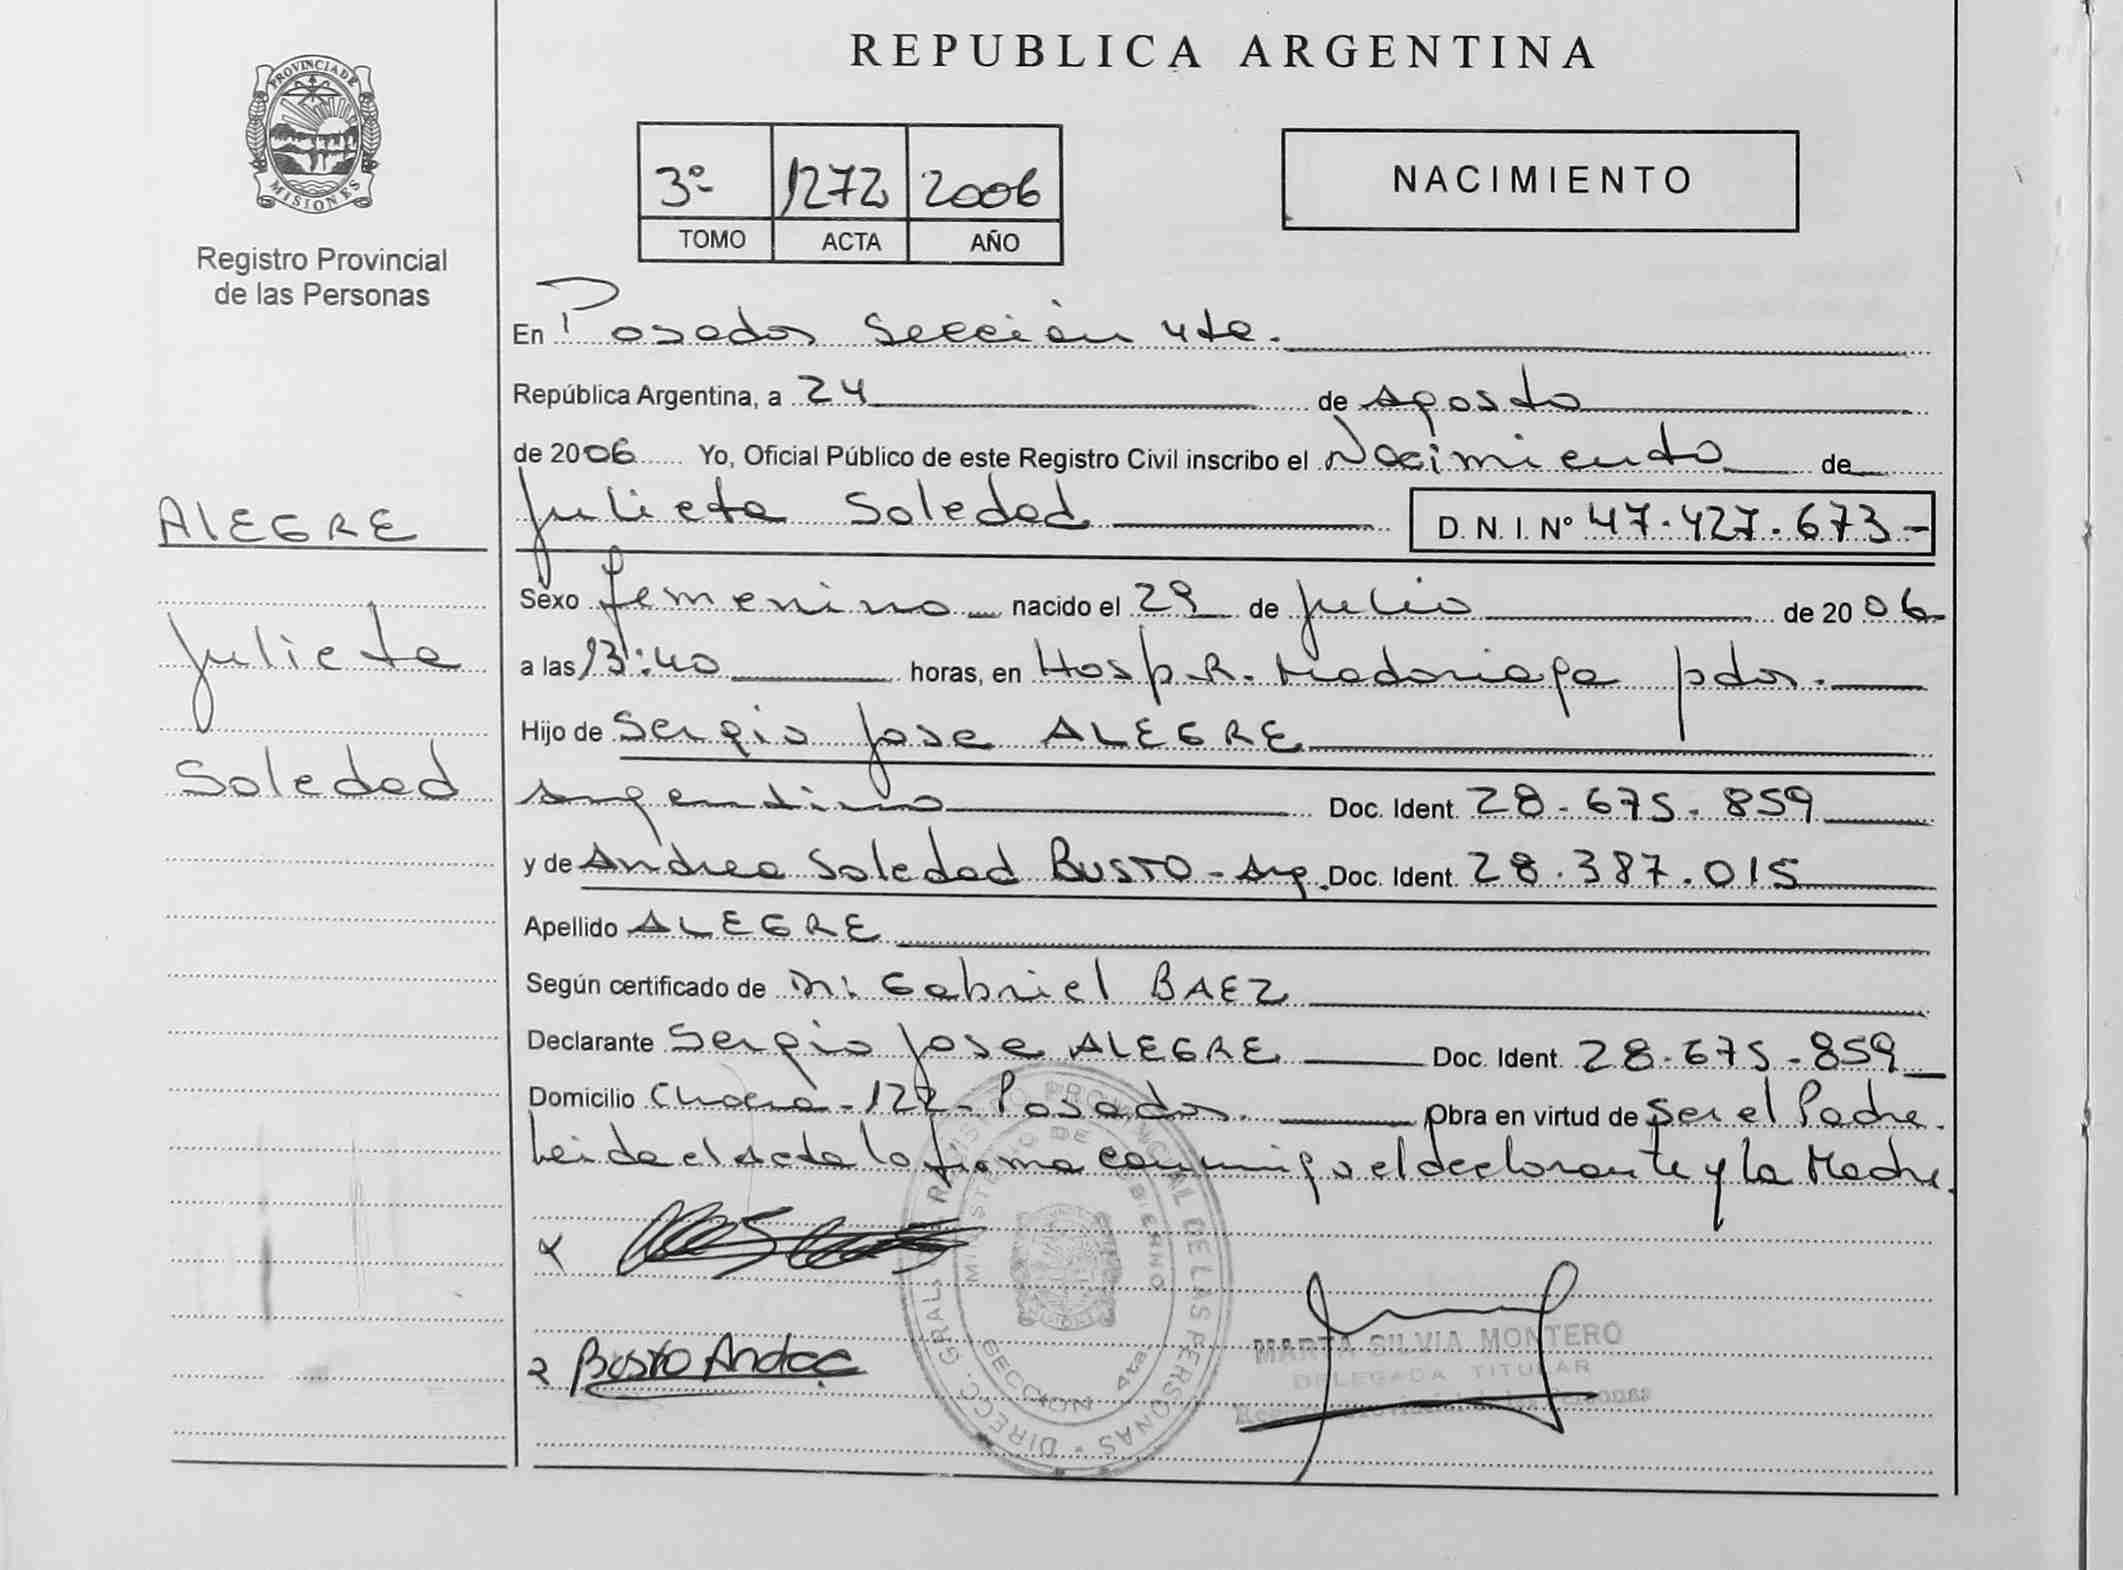 REPUBLICA ARGENTINA
PROVINCIA DE MISIONES
Registro Provincial
de las Personas
3º 1272 2006
TOMO ACTA AÑO
NACIMIENTO
En Posadas Sección 4ta.
República Argentina, a 24 de Agosto
de 2006 Yo, Oficial Público de este Registro Civil inscribo el Nacimiento de
Julieta Soledad D. N. I. Nº 47.427.673-
ALEGRE
Julieta
Soledad
Sexo femenino nacido el 29 de Julio de 2006
a las 13:40 horas, en Hosp. R. Madariaga pdas.
Hijo de Sergio Jose ALEGRE
Argentino Doc. Ident. 28.675.859
y de Andrea Soledad BUSTO - Arg. Doc. Ident. 28.387.015
Apellido ALEGRE
Según certificado de Gabriel BAEZ
Declarante Sergio Jose ALEGRE Doc. Ident. 28.675.859
Domicilio Chacra - 122 - Posadas. Obra en virtud de Ser el Padre.
Leida el Acta la firma conmigo el declarante y la Madre.
Busto Andrea
DIRECC. GRAL. REGISTRO PROVINCIAL DE LAS PERSONAS
MINISTERIO DE GOBIERNO
SECCION 4ta.
MARTA SILVIA MONTERO
DELEGADA TITULAR
Personas